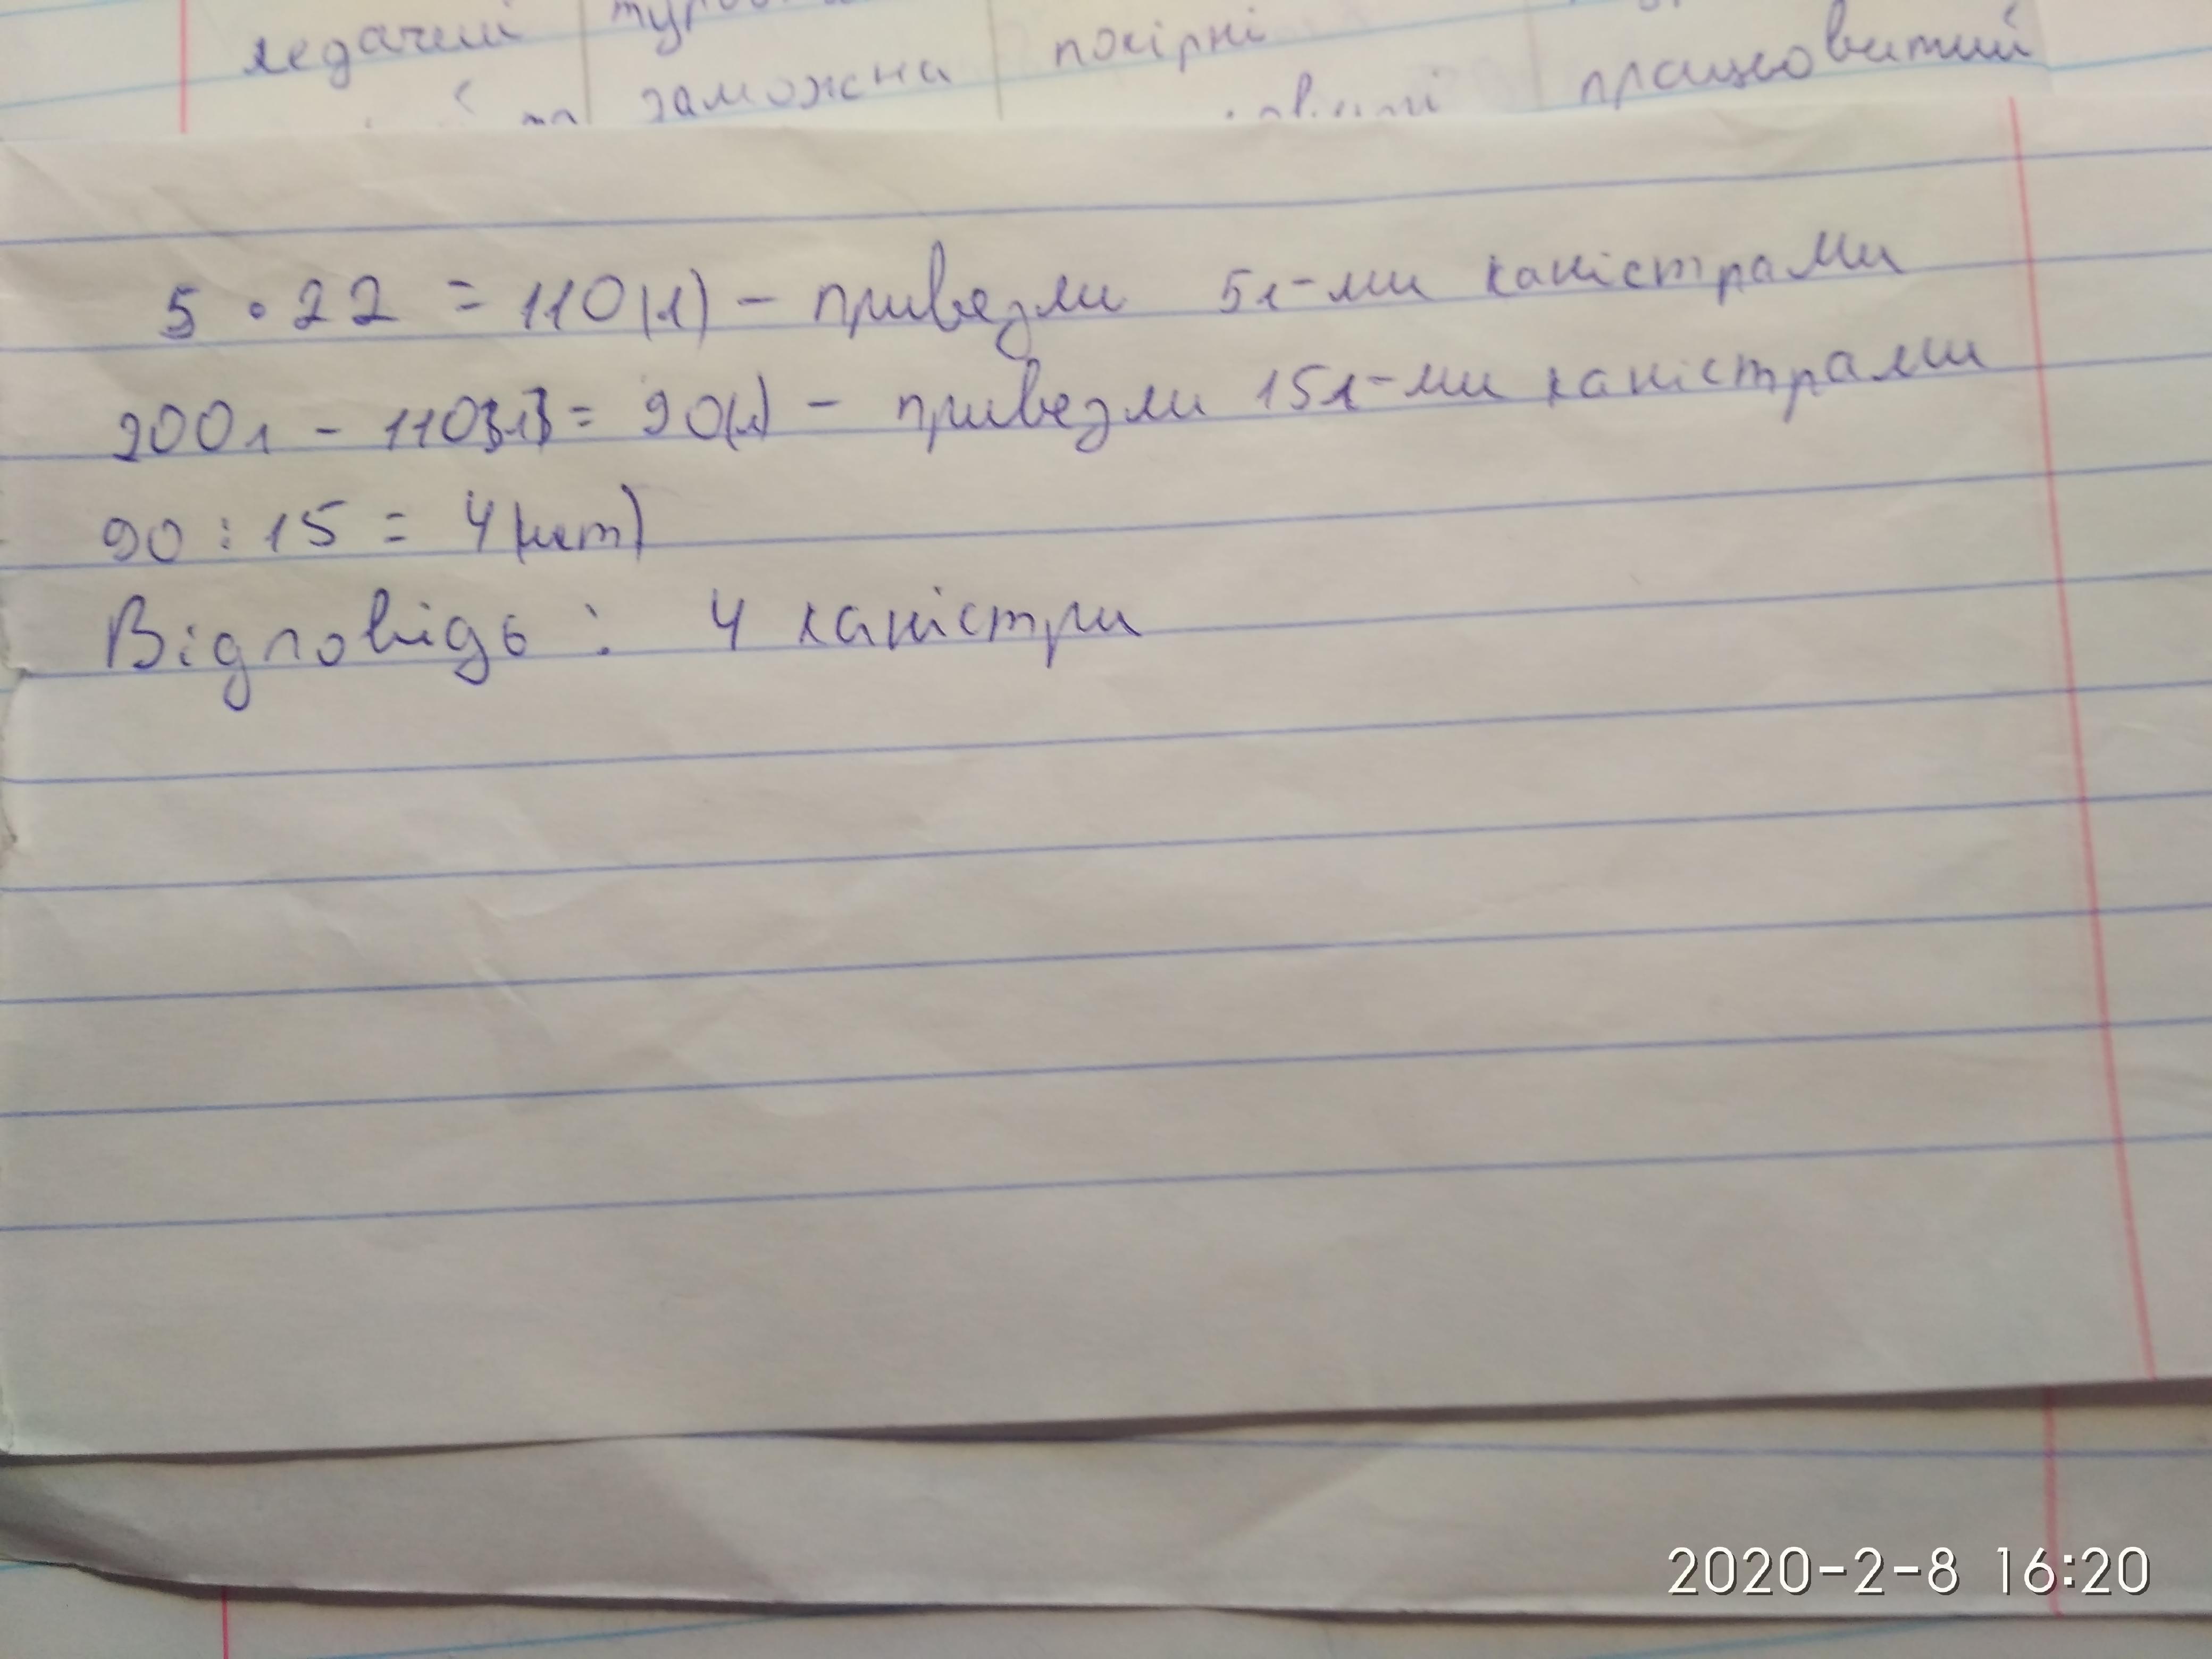 ледачий
заможна покірні працьовитий
5 • 22 = 110(л) - привезли 5л-ми каністрами
200л - 110(л) = 90(л) - привезли 15л-ми каністрами
90 : 15 = 4(шт)
Відповідь : 4 каністри
2020-2-8 16:20